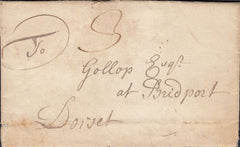 To
Gollop Esqr.
at Bridport
Dorset